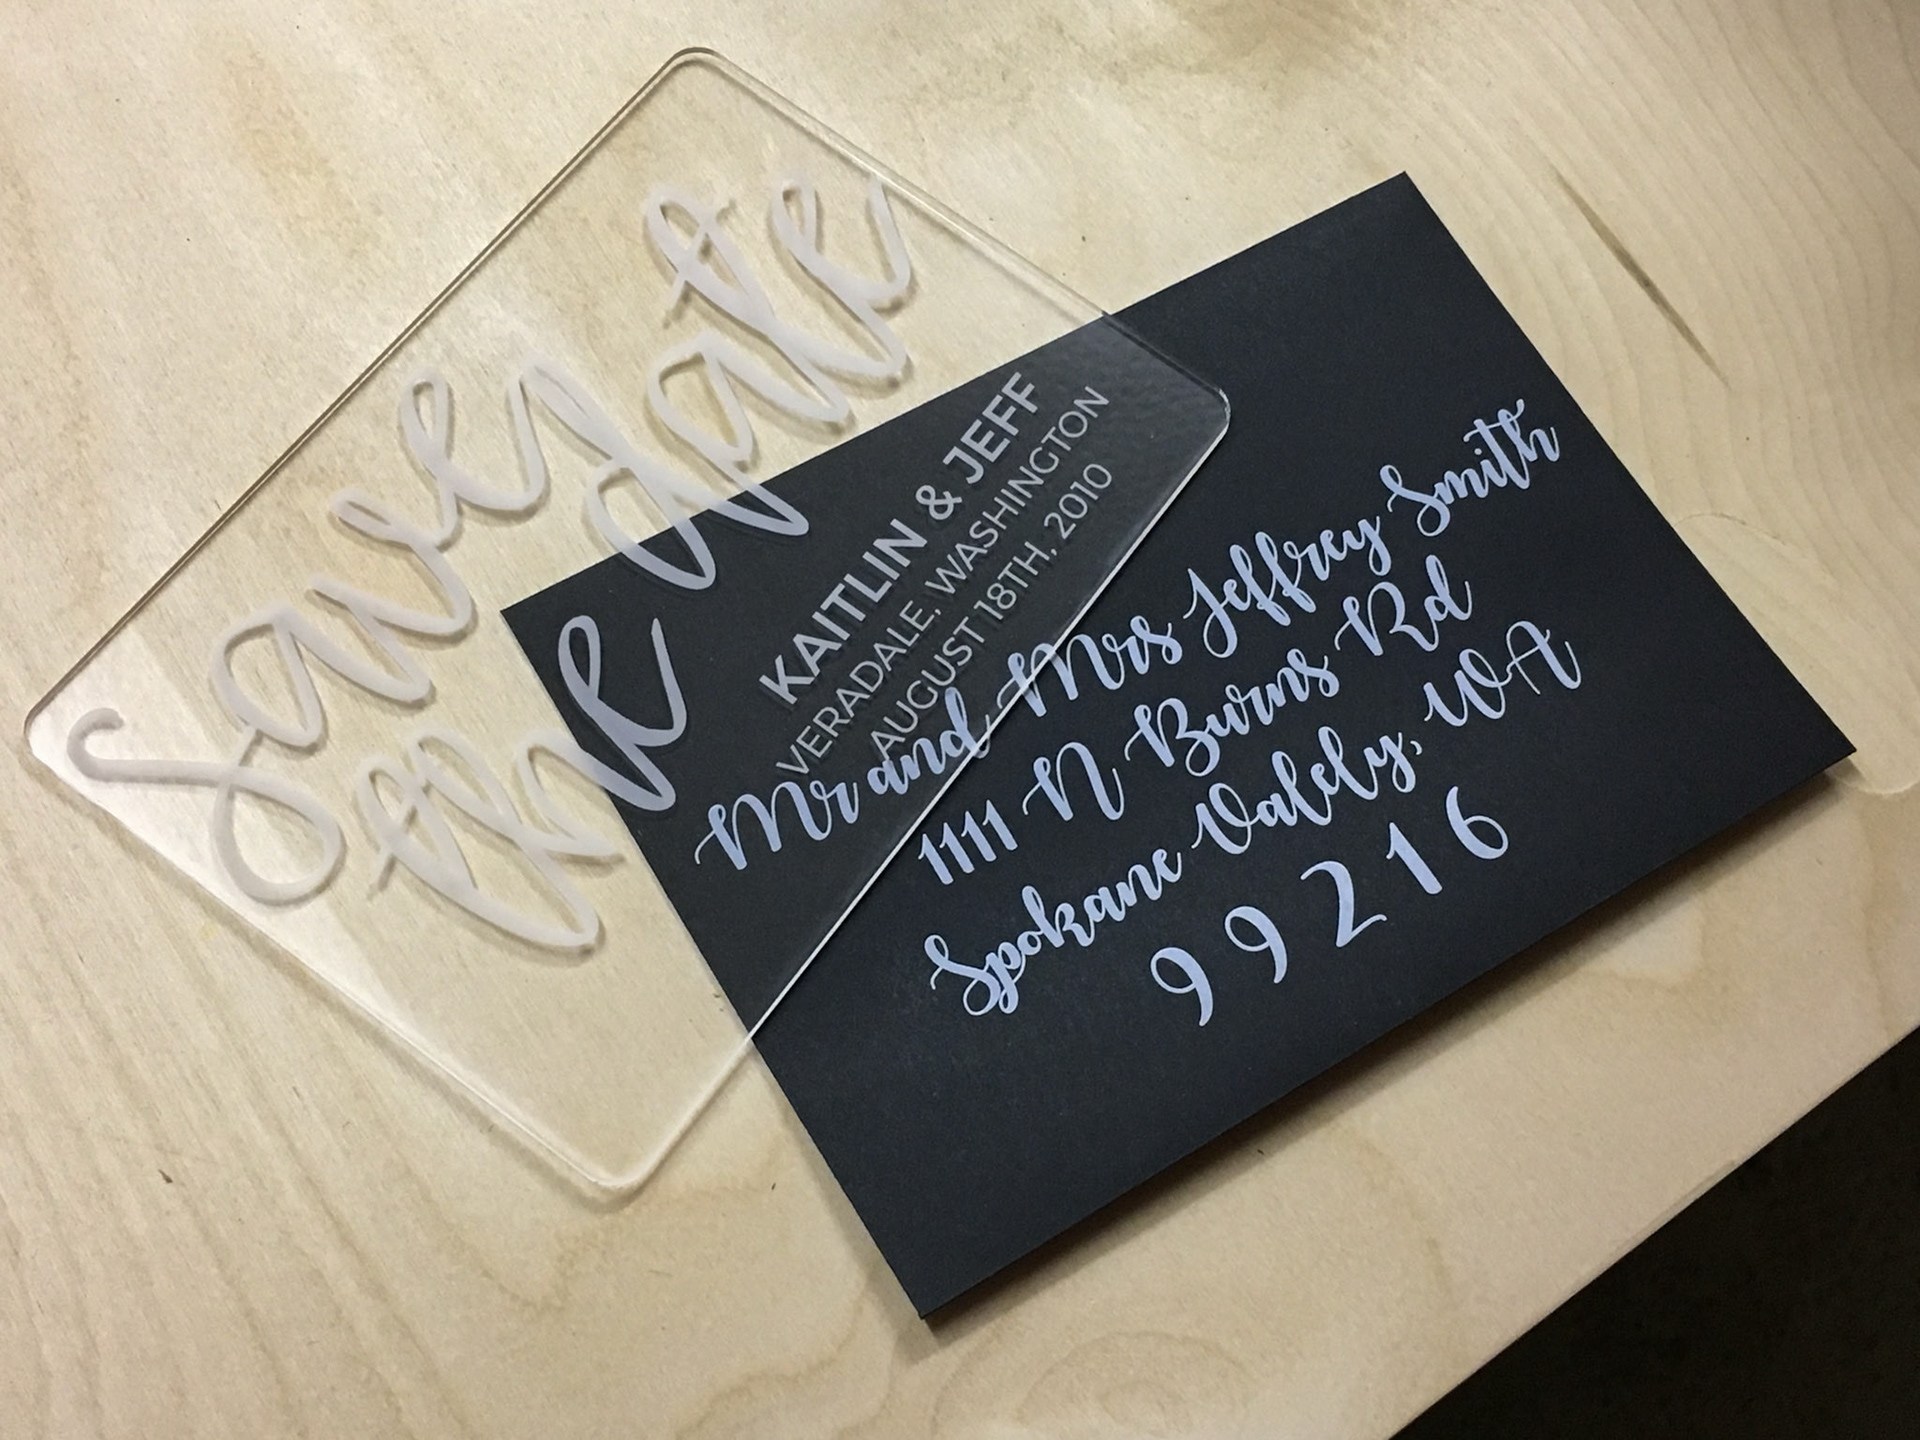 save
the date
KAITLIN & JEFF
VERADALE, WASHINGTON
AUGUST 18TH, 2010
Mr and Mrs Jeffrey Smith
1111 N Burns Rd
Spokane Valely, WA
99216